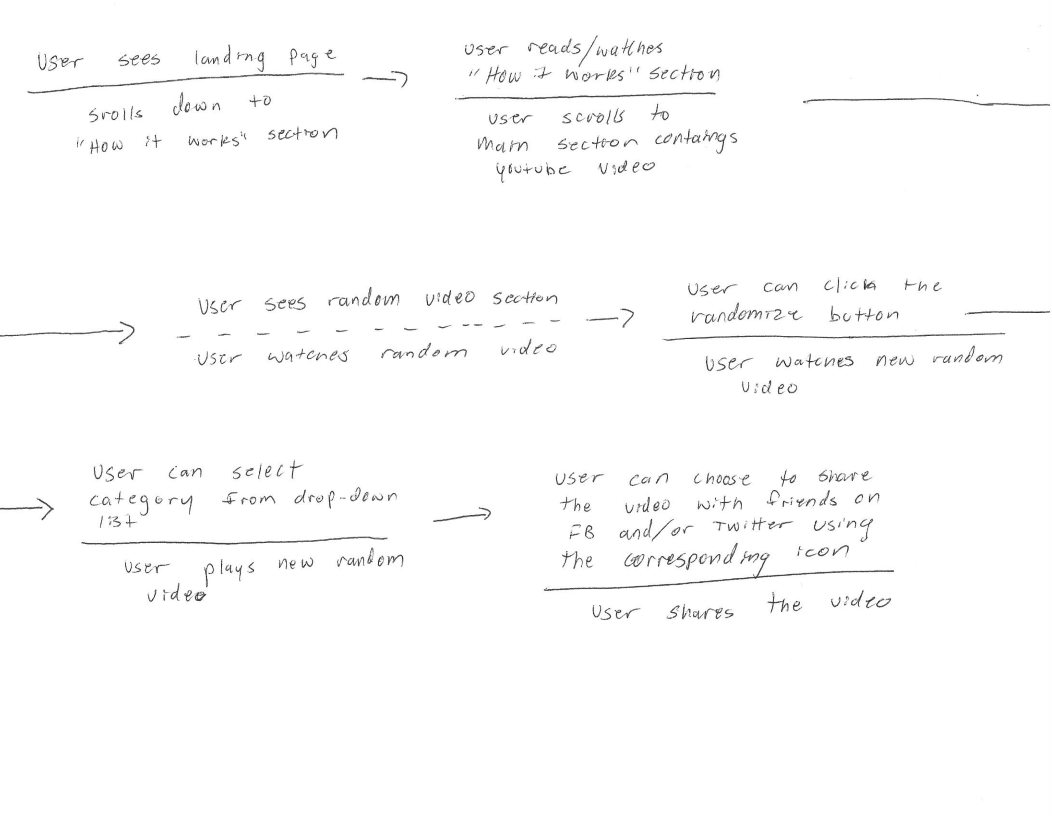 User sees landing page
srolls down to
"How it works" section
User reads/watches
"How it works" section
user scrolls to
main section contaings
youtube video
User sees random video section
User watches random video
User can click the
randomize button
User watches new random
video
User can select
category from drop-down
list
User plays new random
video
User can choose to share
the video with friends on
FB and/or Twitter using
the corresponding icon
User shares the video